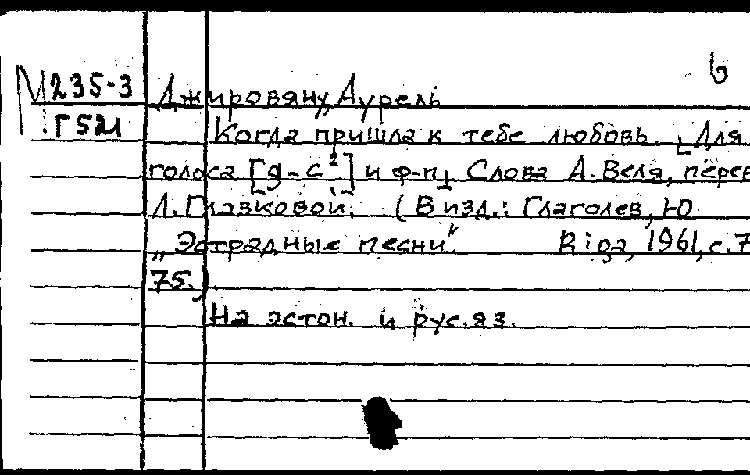 6
М235-3
Г521
Джировяну, Аурель
Когда пришла к тебе любовь. [Для
голоса [g-c²] и ф-п]. Слова А. Веля, перев
Л. Главковой. (В изд.: Глаголев, Ю
„Эстрадные песни". Riga, 1961, с. 7
75.)
На эстон. и рус. яз.